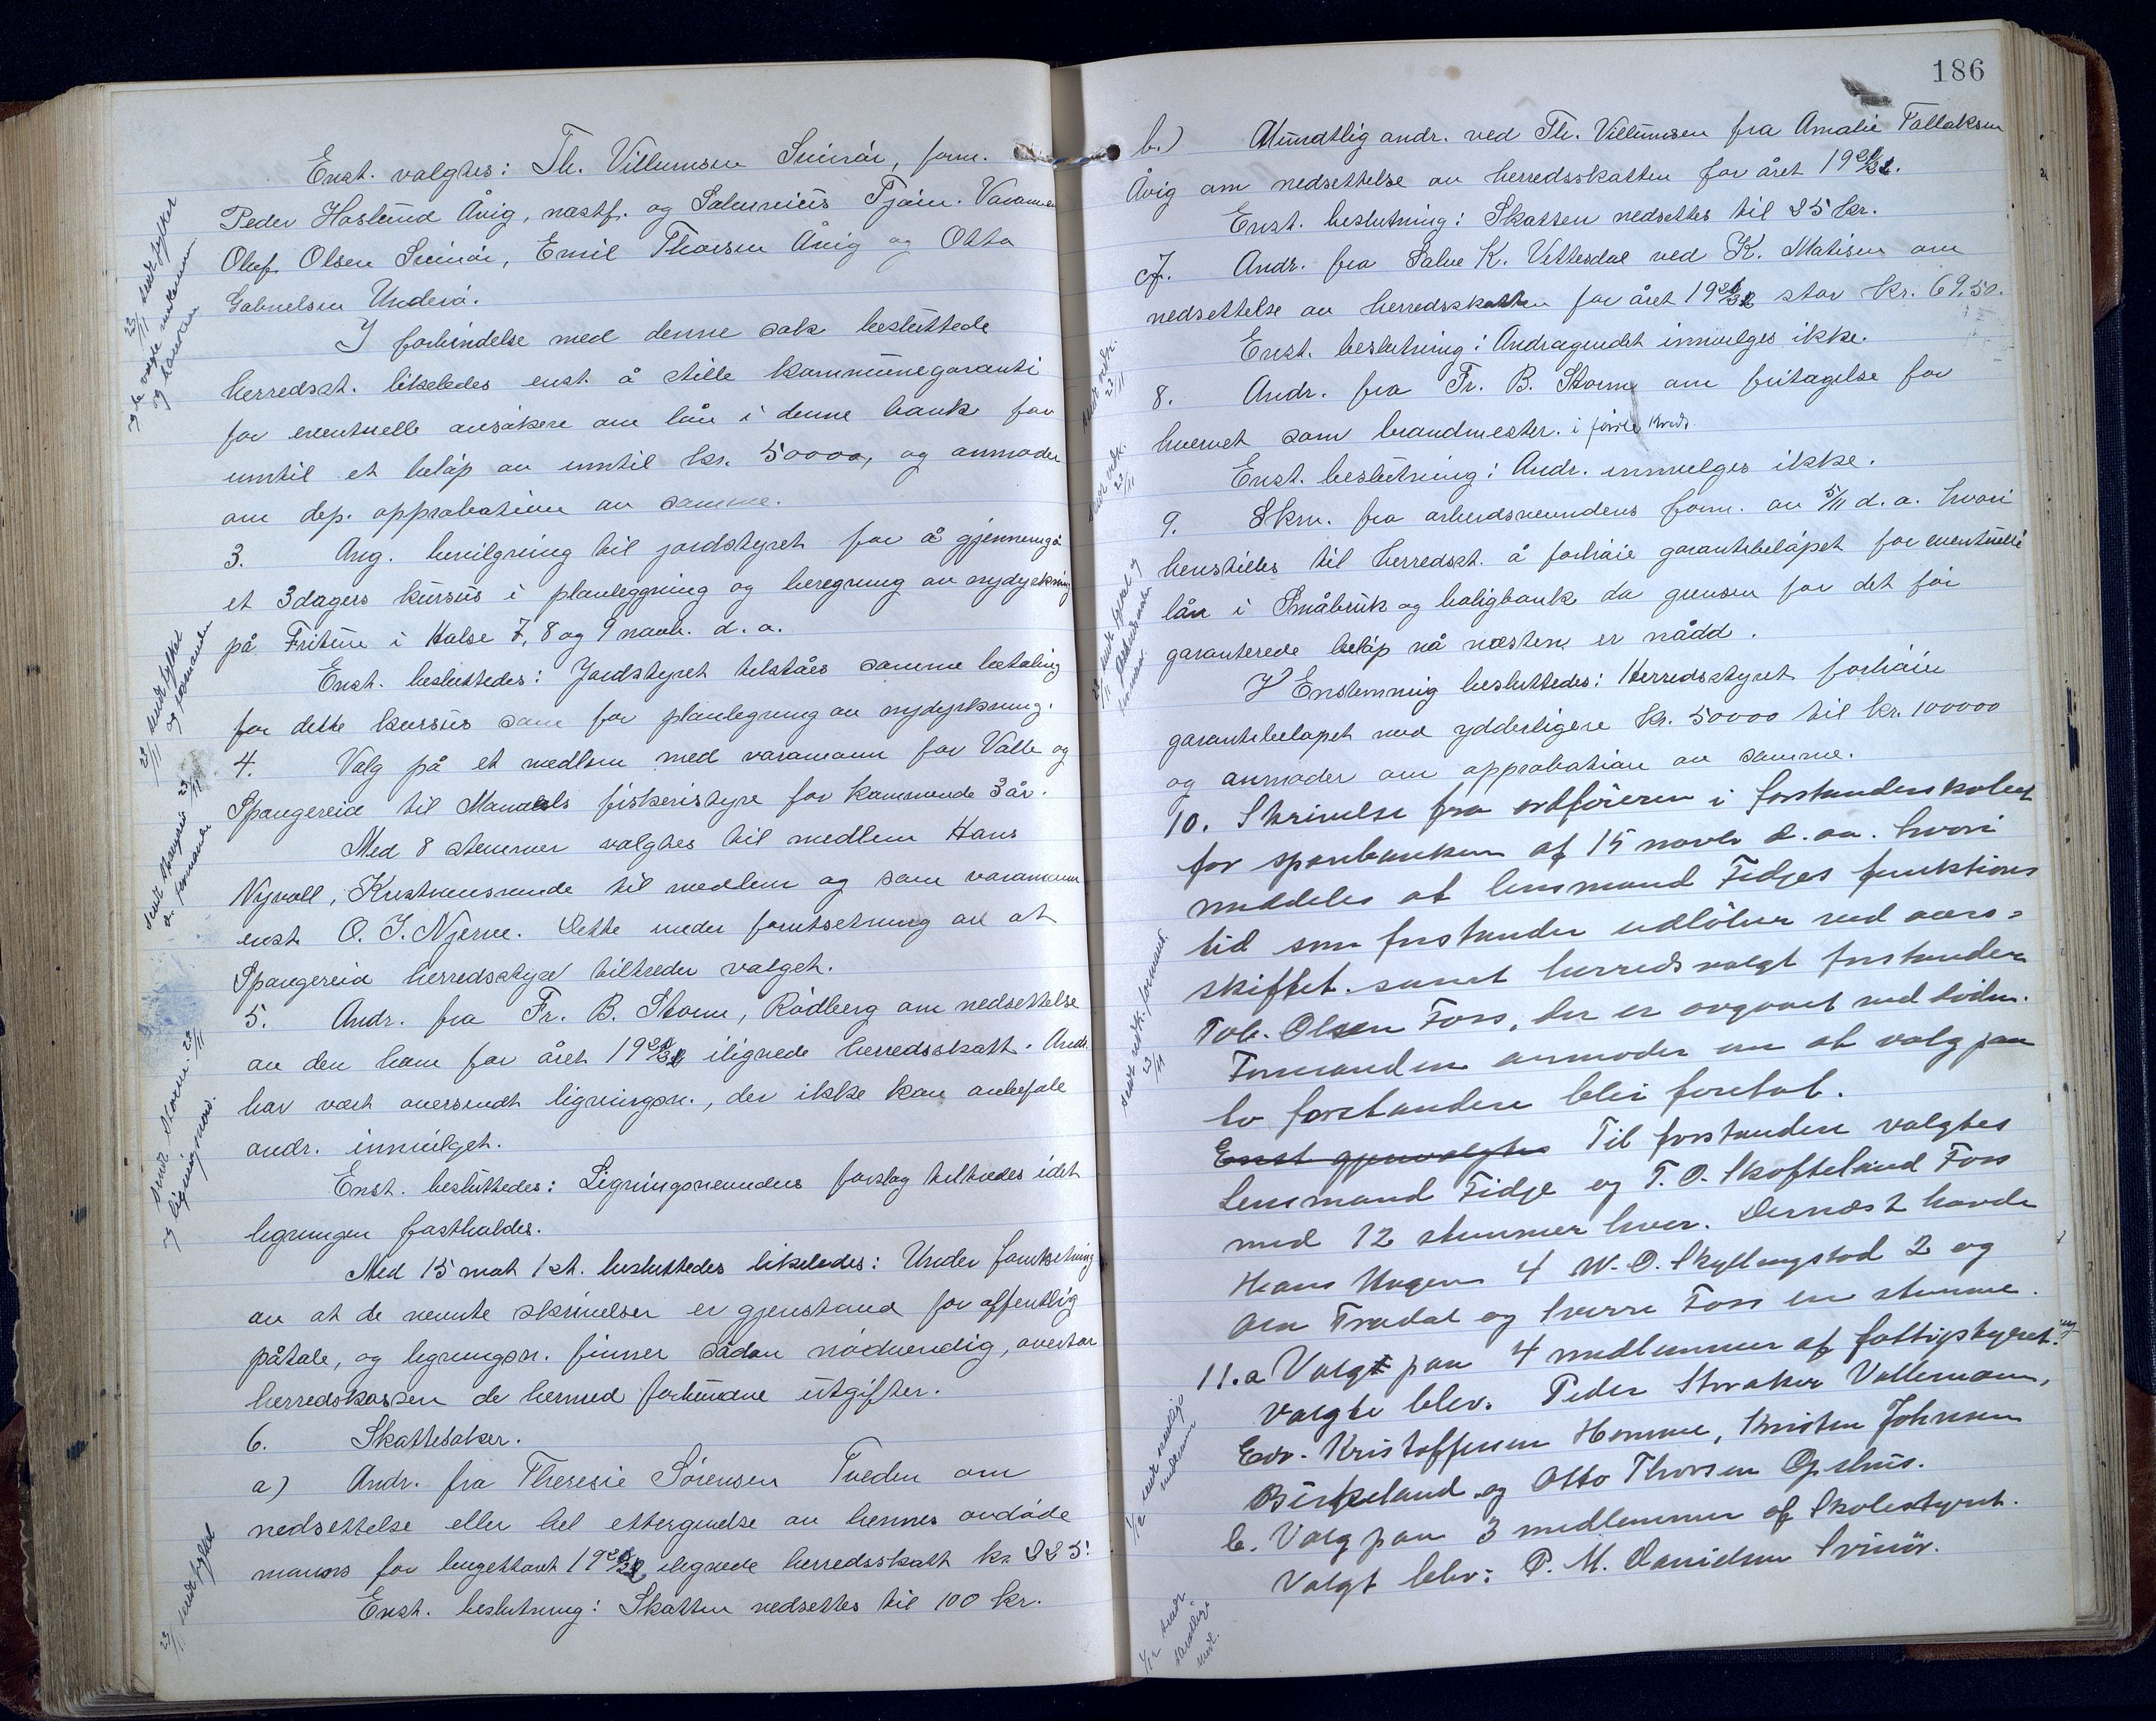 Enst. valgtes: Th. Villumsen Svinør, form.
Peder Haslund Åvig, næstf. og Salomius Tjøm. Varamenn
Oluf Olsen Svinør, Emil Thorsen Åvig og Otto
Gabrielsen Underø.
I forbindelse med denne sak besluttede
herredsst. likeledes enst. å stille kommunegaranti
for eventuelle ansøkere om lån i denne bank for
inntil et beløp av inntil kr. 50000, og anmoder
om dep. approbation av samme.
3. Ang. bevilgning til jordstyret for å gjennemgå
et 3dagers kursus i planleggning og beregning av nydyrkning
på Fritun i Halse 7, 8 og 9 novb. d. a.
Enst. besluttedes: Jordstyret tilståes samme betaling
for dette kursus som for planlegning av nydyrkning.
4. Valg på et medlem med varamann for Valle og
Spangereid til Mandals fiskeristyre for kommende 3 år.
Med 8 stemmer valgtes til medlem Hans
Nyvoll, Kristiansrunde til medlem og som varamann
enst. O. J. Njerve. Dette under forutsetning av at
Spangereid herredsstyre tiltreder valget.
5. Andr. fra Fr. B. Storm, Rødberg om nedsettelse
av den ham for året 19 ilignede herredsskatt. Andr.
har vært oversendt ligningsn., der ikke kan anbefale
andr. innvilget.
Enst. besluttedes: Ligningsnevndens forslag tiltredes idet
ligningen fastholdes.
Med 15 mot 1 st. besluttedes likeledes: Under forutsetning
av at de nevnte skrivelser er gjenstand for offentlig
påtale, og ligningsn. finner sådan nødvendig, overtar
herredskassen de hermed forbundne utgifter.
6. Skattesaker.
a) Andr. fra Theresie Sørensen Tveden om
nedsettelse eller hel ettergivelse av hennes avdøde
manns for bugettåret 19 ilignede herredsskatt kr. 225:
Enst. beslutning: Skatten nedsettes til 100 kr.
23/11 sendt fylket
og de valgte medlemmer
og banken
23/11 sendt fylket
og formanden
23/11
sendt Storm 23/11
og ligningsnevd.
23/11 sendt fylket
186
b.) Mundtlig andr. ved Th. Villumsen fra Amalie Tallaksen
Åvig om nedsettelse av herredsskatten for året 19
Enst. beslutning: Skatten nedsettes til 25 kr.
7. Andr. fra Salve K. Vettesdal ved K. Matisen om
nedsettelse av herredsskatten for året 19 stor kr. 69,50.
Enst. beslutning: Andragendet innvilges ikke.
8. Andr. fra Fr. B. Storm om fritagelse for
hvervet som brandmester. i første Kreds.
Enst. beslutning: Andr. innvilges ikke.
9. Skrv. fra arbeidsnevndens form. av 5/11 d. a. hvori
henstilles til herredsst. å forhøie garantibeløpet for eventuelle
lån i Småbruk og boligbank da grensen for det før
garanterede beløp nå næsten er nådd.
Enstemmig besluttedes: Herredsstyret forhøier
garantibeløpet med ydderligere kr. 50000 til kr. 100000
og anmoder om approbation av samme.
10. Skrivelse fra ordføreren i forstanderskabet
for sparebanken af 15 novbr d. aa. hvori
meddeles at lensmand Fidjes funktions
tid som forstander udløber ved aars-
skiftet. samt herreds valgt forstander
Tob. Olsen Foss, der er avgaaet ved døden.
Formanden anmoder om at valg paa
to forstandere blir foretat.
Enst gjenvalgtes Til forstandere valgtes
Lensmand Fidje og T. O. Skofteland Foss
med 12 stemmer hver. Dernæst havde
Hans Haugen 4 W. O. Skyllingstad 2 og
Ola Tredal og Sverre Foss en stemme.
11. a Valgt paa 4 medlemmer af fattigstyret.
Valgte blev. Peder Straker Vallemoen,
Edv. Kristoffersen Homme, Kristen Johnsen
Birkeland og Otto Thorsen Opshus.
b. Valg paa 3 medlemmer af Skolestyret.
Valgt blev: P. M. Danielsen Svinør.
sendt vedk.
23/11
sendt vedk.
23/11
23/11 sendt fylket og
arbeidsnevndens
formann.
sendt vedk. formand.
23/11
1/12 sendt samtlige
medlemmer
1/12 sendt
samtlige
medl.